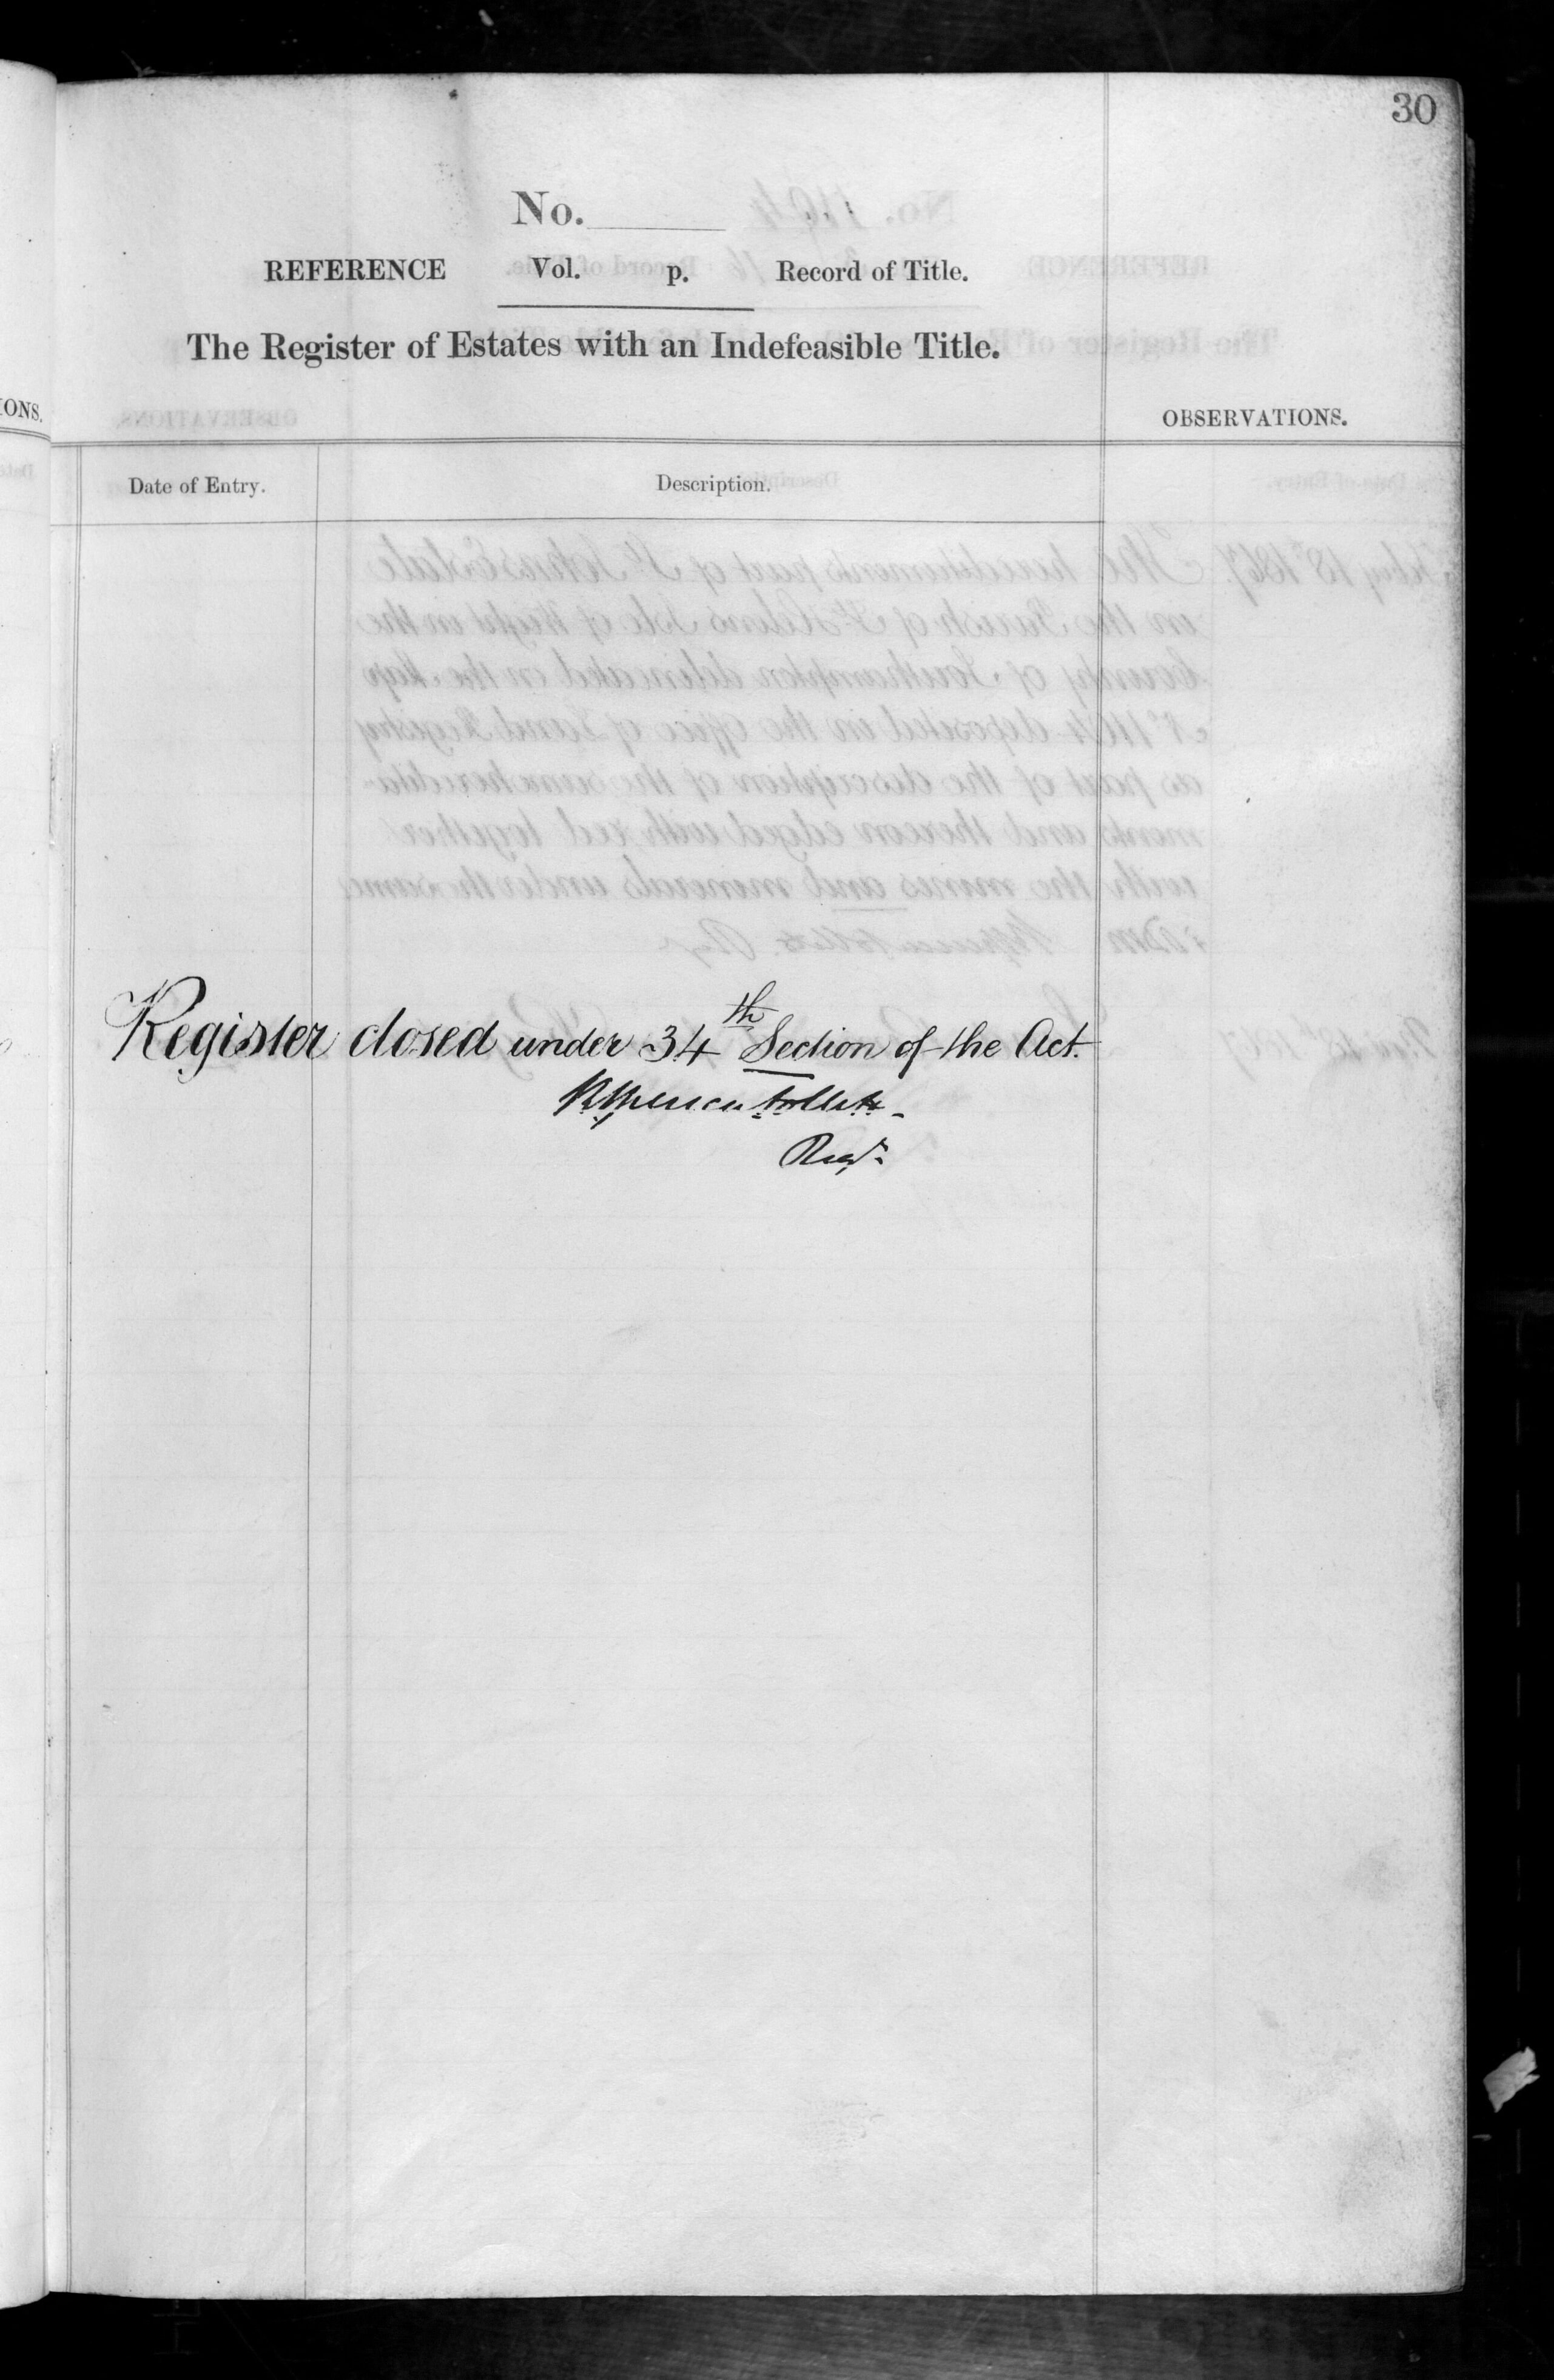 30
No.
REFERENCE Vol. p. Record of Title.
The Register of Estates with an Indefeasible Title.
IONS.
OBSERVATIONS.
Date of Entry.
Description.
Register closed under 34th Section of the Act.
Regr